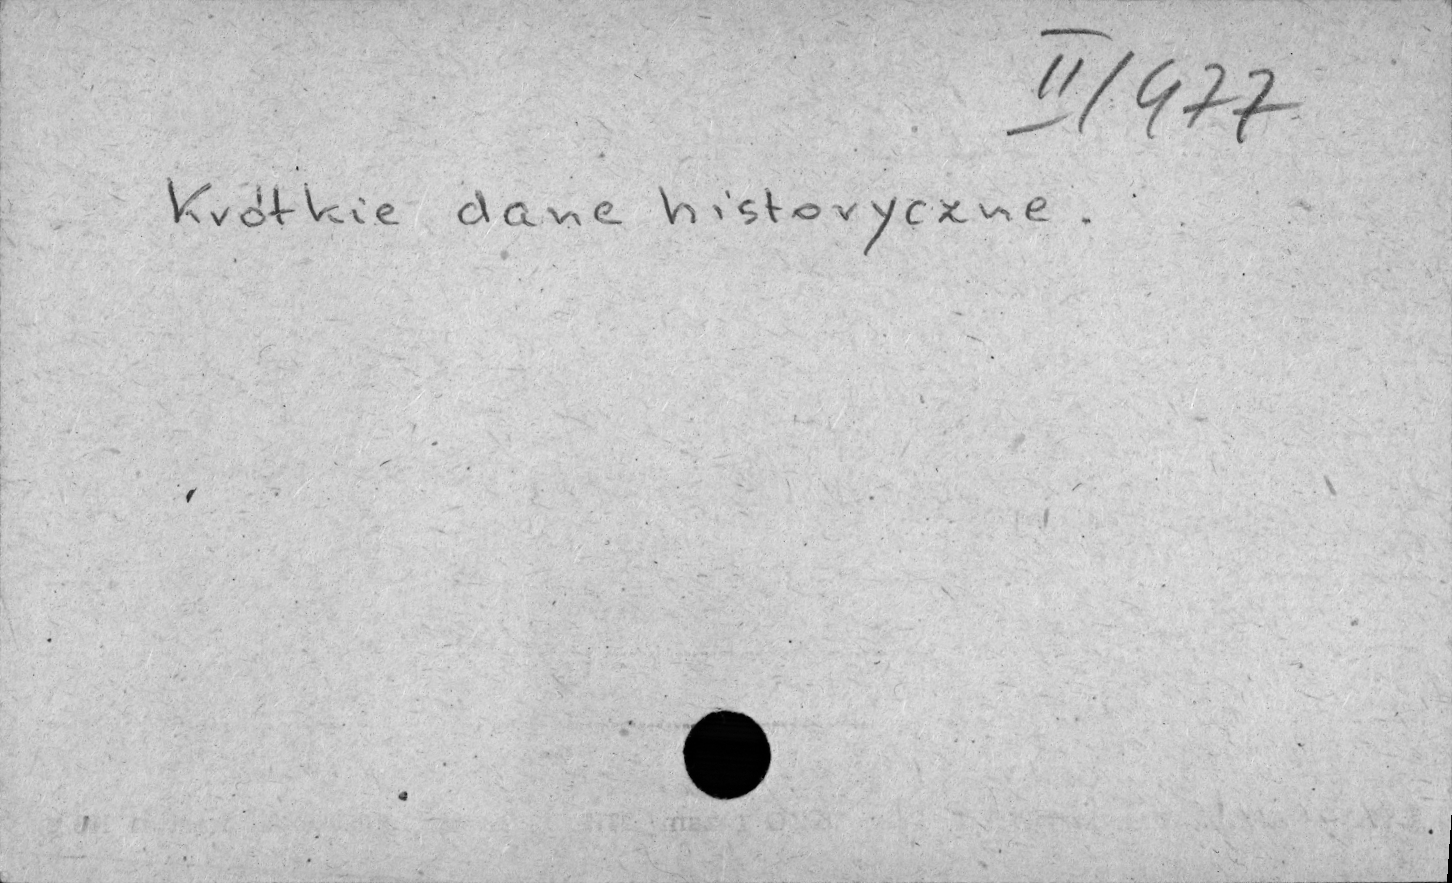 II/977
Krótkie dane historyczne.